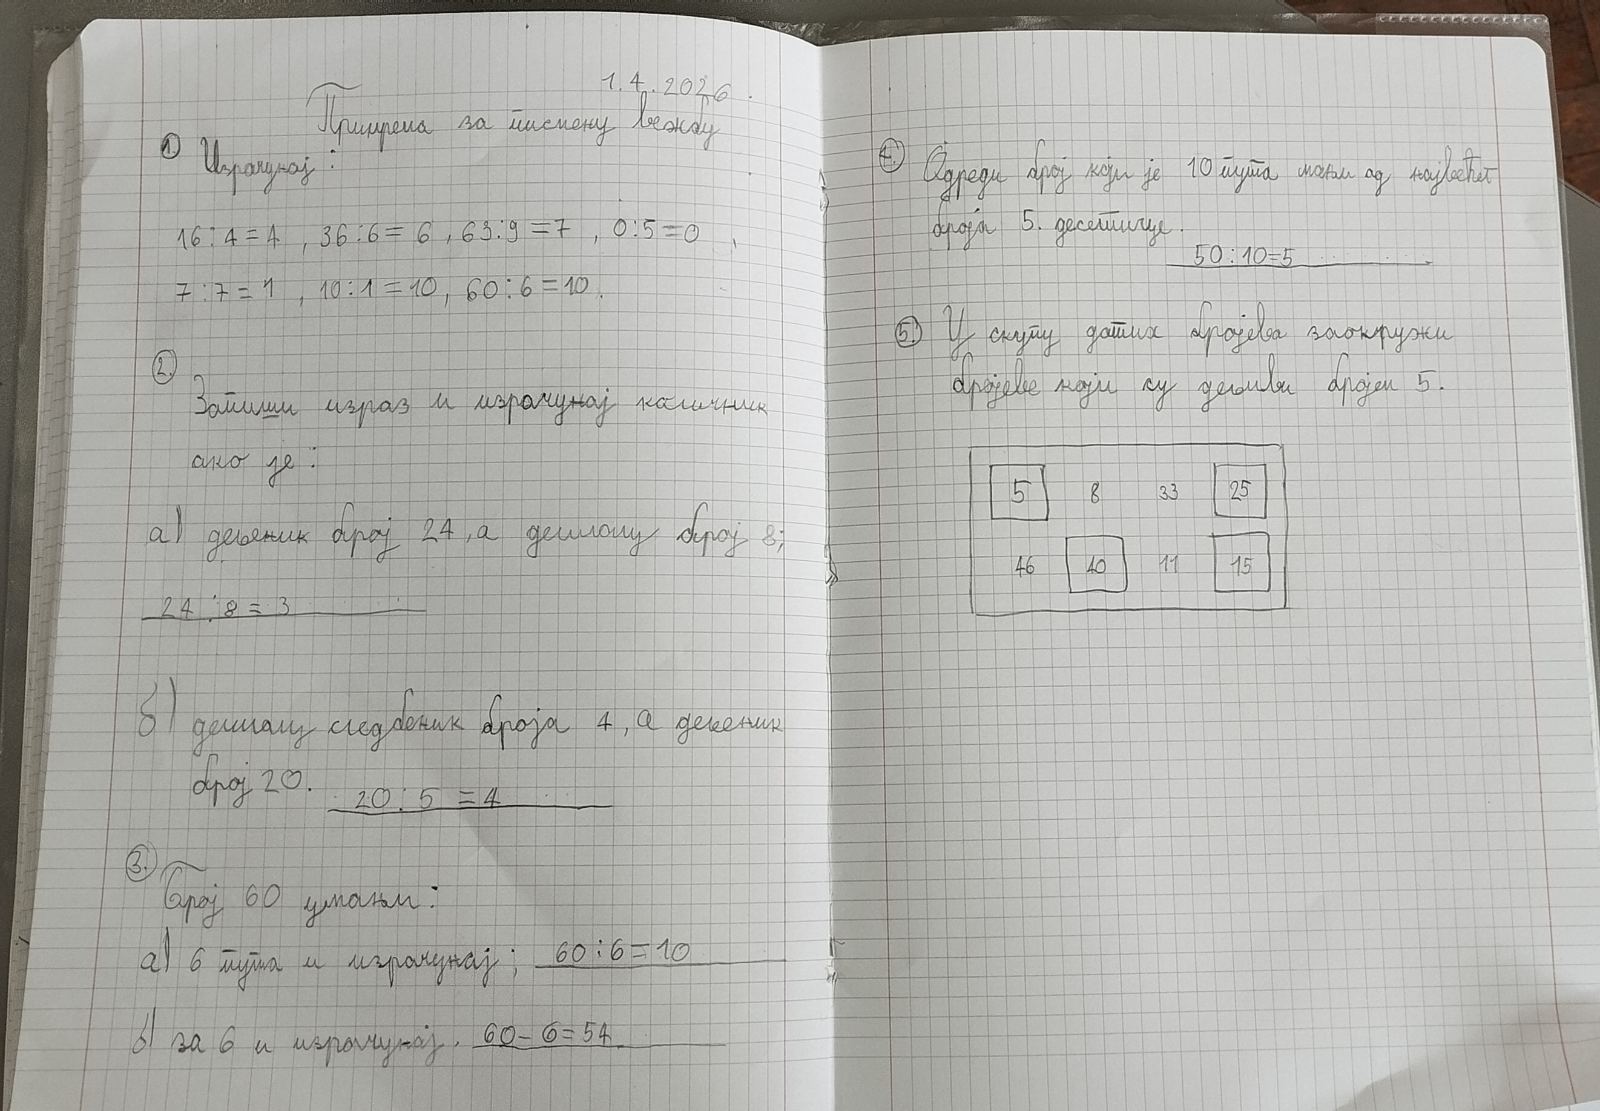 1.4.2026.
Припрема за писмену вежбу
1. Израчунај:
16:4=4, 36:6=6, 63:9=7, 0:5=0,
7:7=1, 10:1=10, 60:6=10.
2.
Запиши израз и израчунај количник
ако је:
а) дељеник број 24, а делилац број 8;
24:8=3
б) делилац следбеник броја 4, а дељеник
број 20. 20:5=4
3.
Број 60 умањи:
а) 6 пута и израчунај; 60:6=10
б) за 6 и израчунај. 60-6=54
4. Одреди број који је 10 пута мањи од највећег
броја 5. десетице.
50:10=5
5. У скупу датих бројева заокружи
бројеве који су дељиви бројем 5.
5 8 33 25
46 40 11 15